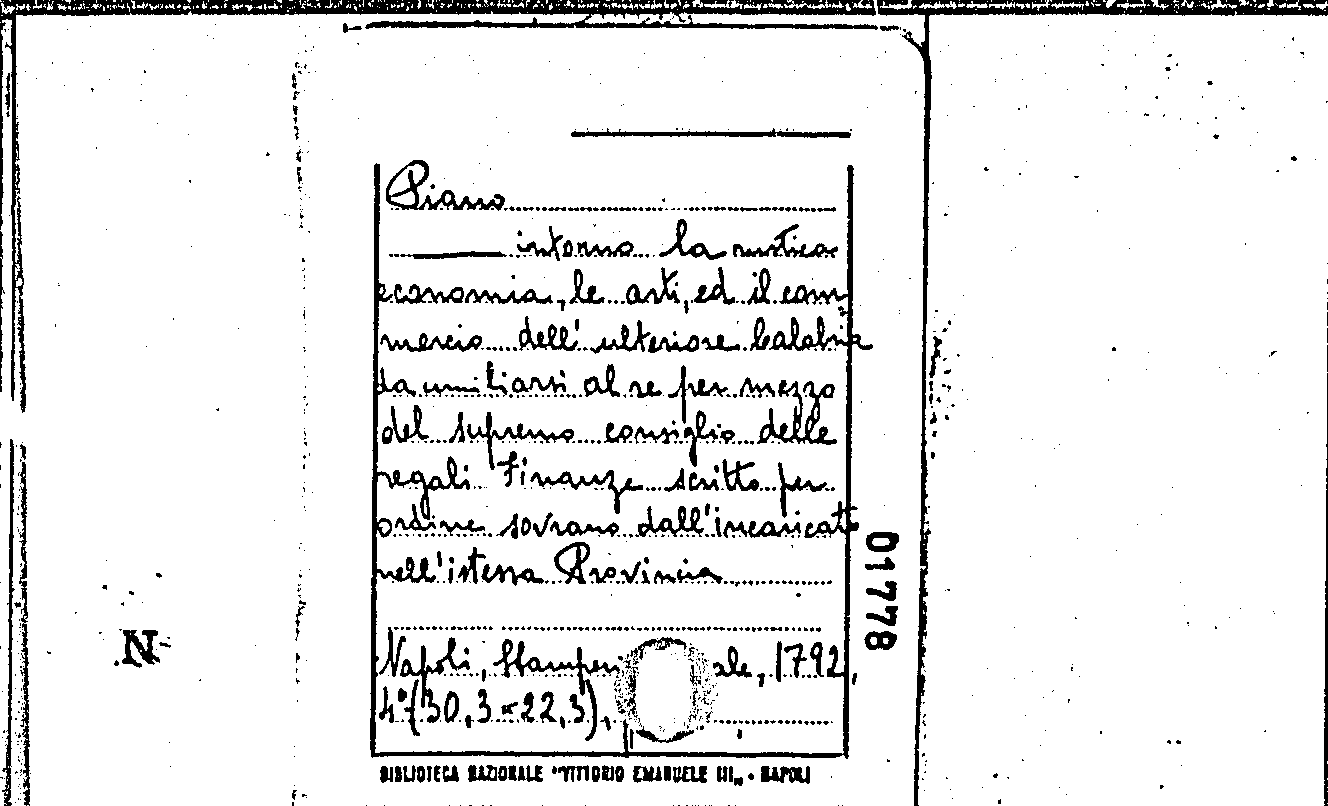 Piano
intorno la rustica
economia, le arti, ed il com
mercio dell' ulteriore Calabria
da umiliarsi al re per mezzo
del supremo consiglio delle
regali Finanze scritto per
ordine sovrano dall'incaricato
nell'istessa Provincia
Napoli, Stamperi ale, 1792,
4° (30,3 × 22,3),
BIBLIOTECA NAZIONALE "VITTORIO EMANUELE III„ - NAPOLI
01778
N